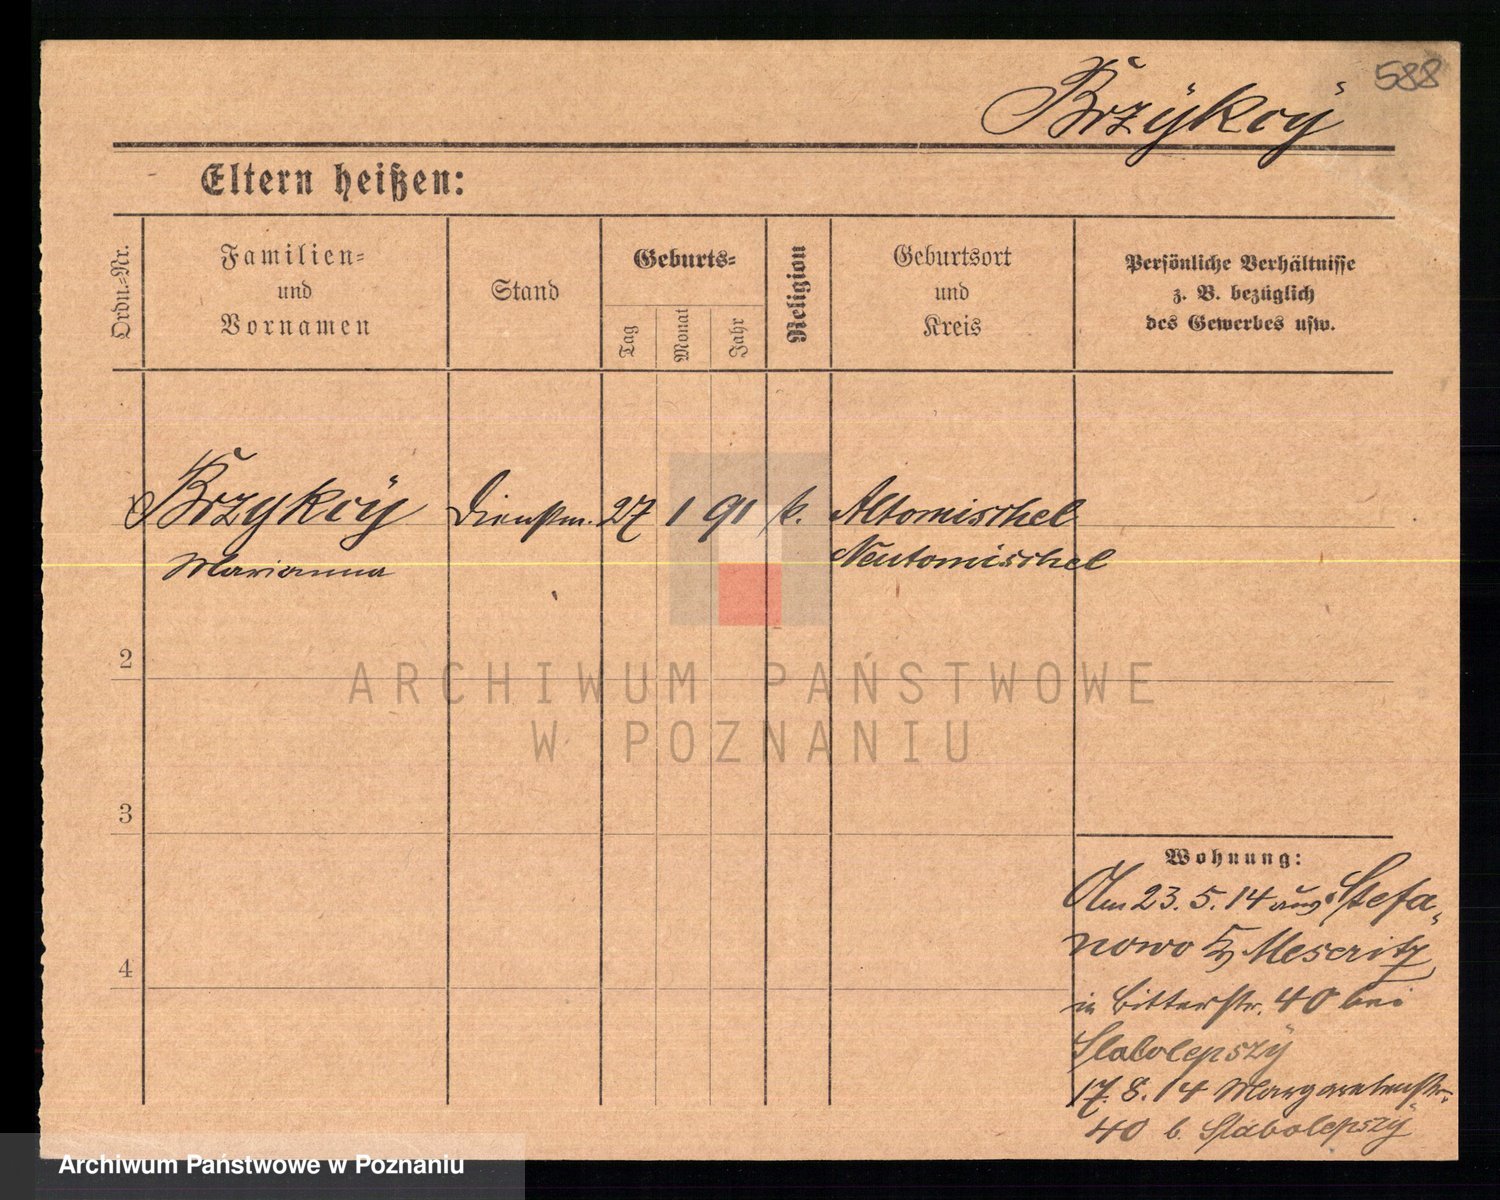 588
Brzÿkcÿ
Eltern heißen:
Ordn.-Nr.
Familien-
und
Vornamen
Stand
Geburts-
Tag
Monat
Jahr
Religion
Geburtsort
und
Kreis
Persönliche Verhältnisse
z. B. bezüglich
des Gewerbes usw.
Brzykcÿ Dienstm. 27 1 91 k. Altomischel
Marianna Neutomischel
2
ARCHIWUM PAŃSTWOWE
W POZNANIU
3
Wohnung:
Am 23.5.14 aus Stefa-
nowo Meseritz
4
in Bitterstr. 40 bei
Slabolepszÿ
17.8.14 Margaretenstr.
40 b. Slabolepszÿ
Archiwum Państwowe w Poznaniu